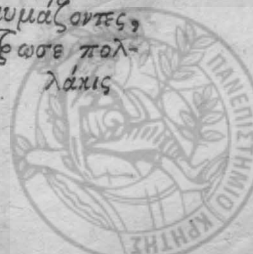 υμάζοντες,
ωσε πολ-
λάκις
ΠΑΝΕΠΙΣΤΗΜΙΟ ΚΡΗΤΗΣ